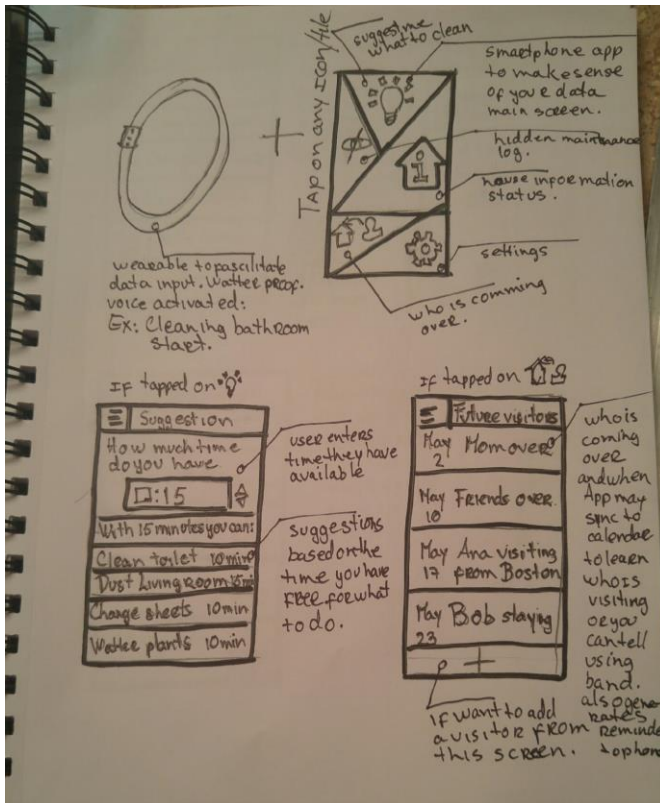 suggest me
what to clean
Tap on any Icon/tile
smartphone app
to make sense
of your data
main screen.
hidden maintenance
log.
house information
status.
settings
who is comming
over.
+
i
wearable to fascilitate
data input. Watter proof.
voice activated:
Ex: Cleaning bathroom
start.
If tapped on
Suggestion
How much time
do you have
:15
With 15 minutes you can:
Clean toilet 10min
Dust Living room
Change sheets 10min
Watter plants 10min
user enters
time they have
available
suggestions
based on the
time you have
FREE for what
to do.
If tapped on
Future visitors
May 2 Mom over
May 10 Friends over.
May 17 Ana visiting
from Boston
May 23 Bob staying
+
who is
coming
over
and when
App may
sync to
calendar
to learn
who is
visiting
or you
can tell
using
band.
also gene
rates
reminde
to phone
if want to add
a visitor from
this screen.